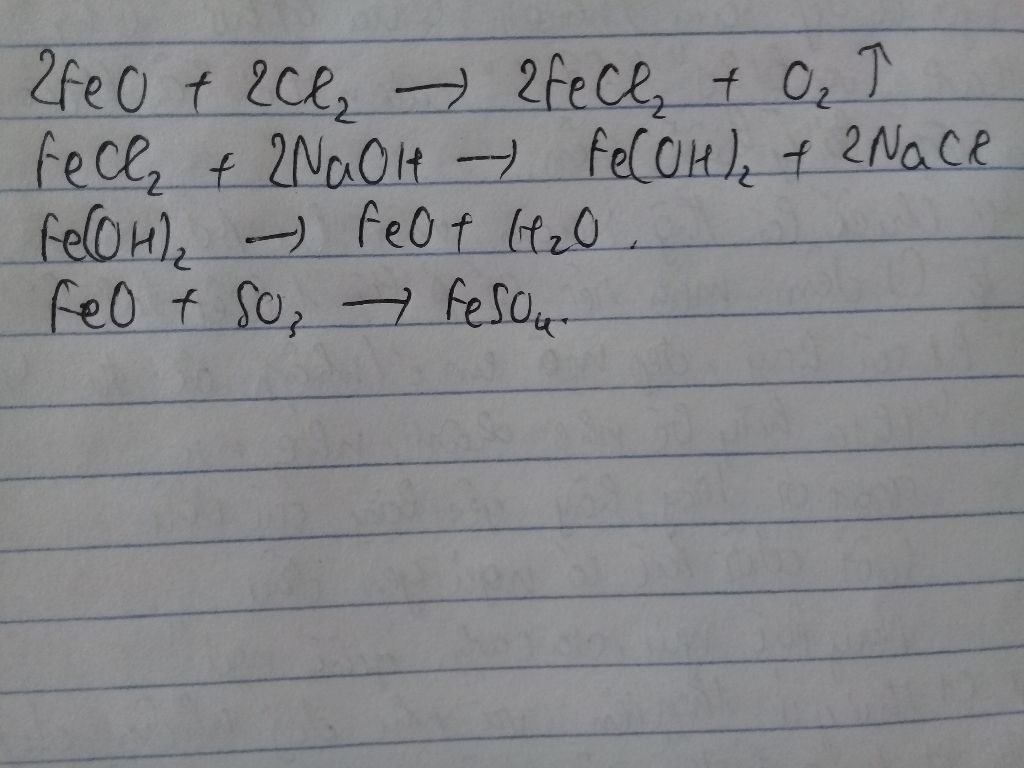 2FeO + 2Cl₂ → 2FeCl₂ + O₂ ↑
FeCl₂ + 2NaOH → Fe(OH)₂ + 2NaCl
Fe(OH)₂ → FeO + H₂O.
FeO + SO₃ → FeSO₄.